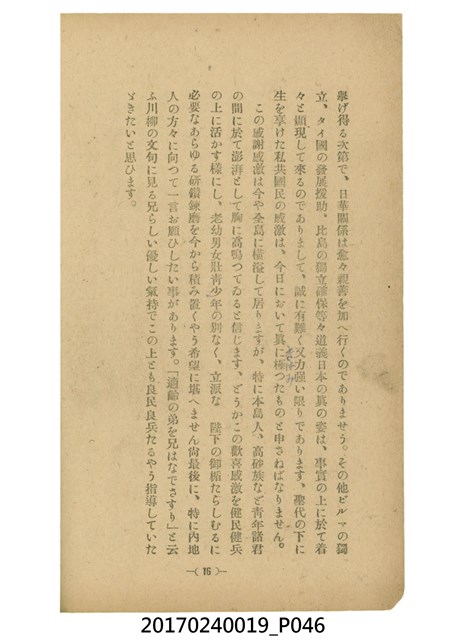 擧げ得る次第で、日華關係は愈々親善を加へ行くのでありませう。その他ビルマの獨
立、タイ國の發展援助、比島の獨立確保等々道義日本の眞の姿は、事實の上に於て着
々と顯現して來るのでありまして、誠に有難く又力強い限りであります、聖代の下に
生を享けた私共國民の感激は、今日において眞に極つたものと申さねばなりません。
この感謝感激は今や全島に横溢して居りますが、特に本島人、高砂族など青年諸君
の間に於て澎湃として胸に高鳴つてゐると信じます、どうかこの歡喜感激を健民健兵
の上に活かす樣にし、老幼男女壯青少年の別なく、立派な 陛下の御楯たらしむるに
必要なあらゆる研鑽錬磨を今から積み置くやう希望に堪へません尙最後に、特に内地
人の方々に向つて一言お願ひしたい事があります。「適齡の弟を兄はなでさすり」と云
ふ川柳の文句に見る兄らしい優しい氣持でこの上とも良民良兵たるやう指導していた
ゞきたいと思ひます。
—( 15 )—
20170240019_P046